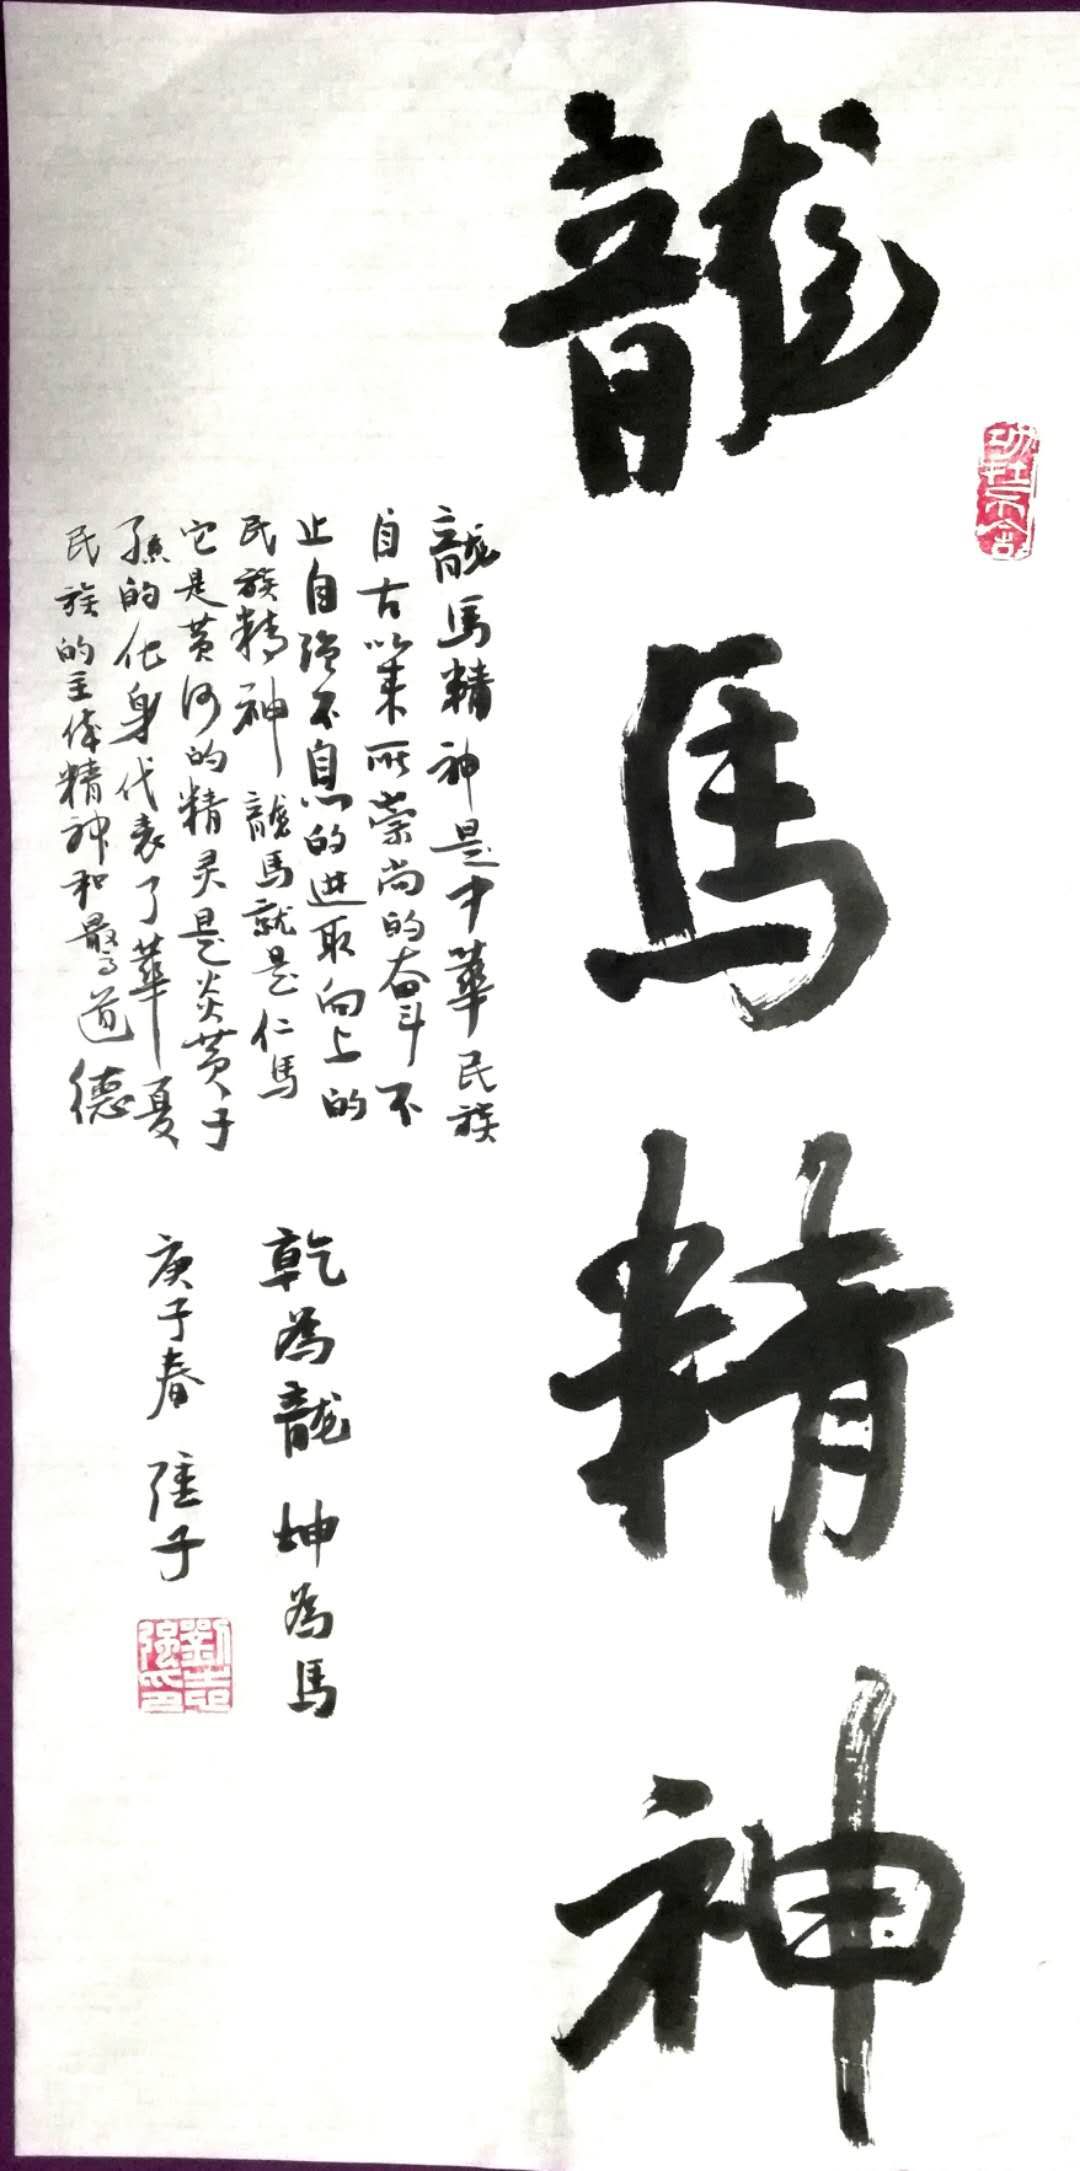 龍馬精神
功在不舍
龍馬精神是中華民族
自古以来所崇尚的奋斗不
止自强不息的进取向上的
民族精神 龍馬就是仁馬
它是黄河的精灵是炎黄子
孫的化身代表了華夏
民族的主体精神和最高道德
乾為龍 坤為馬
庚子春 强子
劉志强印